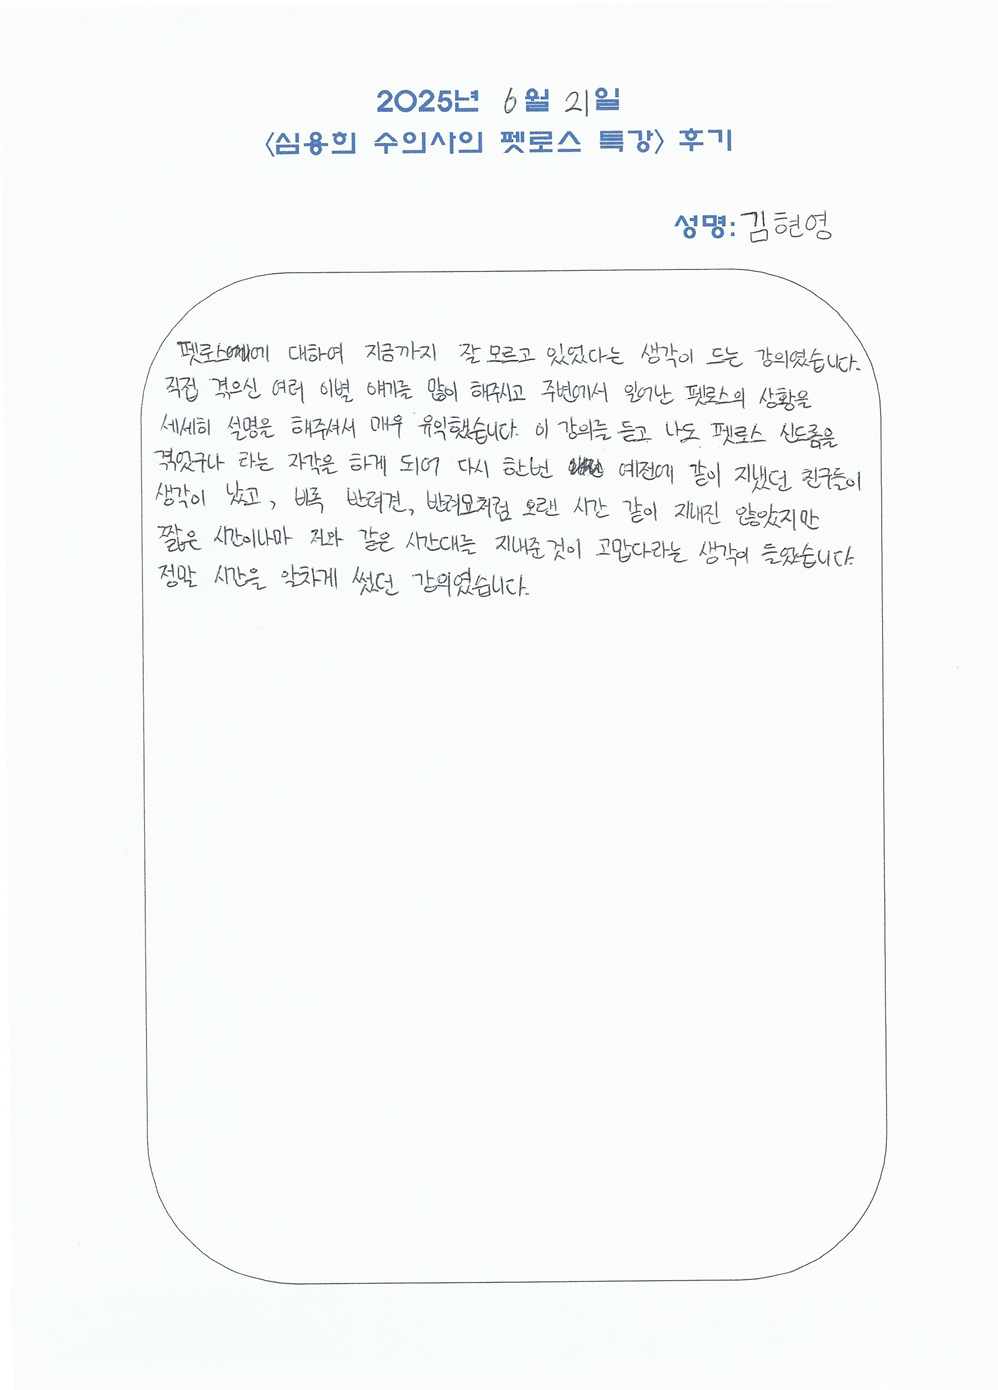 2025년 6월 21일
<심용희 수의사의 펫로스 특강> 후기
성명: 김현영
펫로스에 대하여 지금까지 잘 모르고 있었다는 생각이 드는 강의였습니다.
직접 겪으신 여러 이별 얘기를 많이 해주시고 주변에서 일어난 펫로스의 상황을
세세히 설명을 해주셔서 매우 유익했습니다. 이 강의를 듣고 나도 펫로스 신드롬을
겪었구나 라는 자각을 하게 되어 다시 한번 예전에 같이 지냈던 친구들이
생각이 났고, 비록 반려견, 반려묘처럼 오랜 시간 같이 지내진 않았지만
짧은 시간이나마 저와 같은 시간대를 지내준것이 고맙다라는 생각이 들었습니다.
정말 시간을 알차게 썼던 강의였습니다.